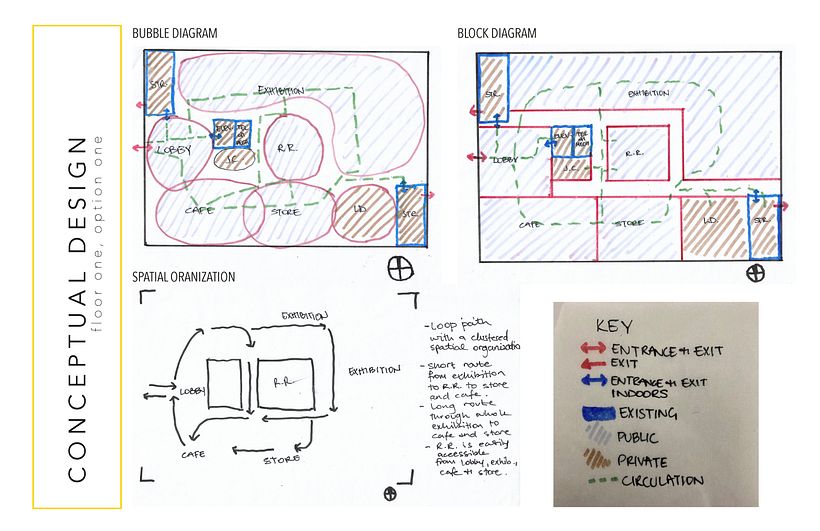 CONCEPTUAL DESIGN
floor one, option one
BUBBLE DIAGRAM
STR.
EXHIBITION
LOBBY
ELEV.
J.C.
R.R.
CAFE
STORE
L.D.
STR.
BLOCK DIAGRAM
STR.
EXHIBITION
LOBBY
ELEV.
J.C.
R.R.
CAFE
STORE
L.D.
STR.
SPATIAL ORANIZATION
EXHIBITION
EXHIBITION
LOBBY
R.R.
CAFE
STORE
- Loop path
with a clustered
spatial organization
- Short route
from exhibition
to R.R. to store
and cafe.
- Long route
through whole
exhibition to
cafe and store
- R.R. is easily
accessible
from lobby, exhib.,
cafe + store.
KEY
ENTRANCE + EXIT
EXIT
ENTRANCE + EXIT
INDOORS
EXISTING
PUBLIC
PRIVATE
CIRCULATION